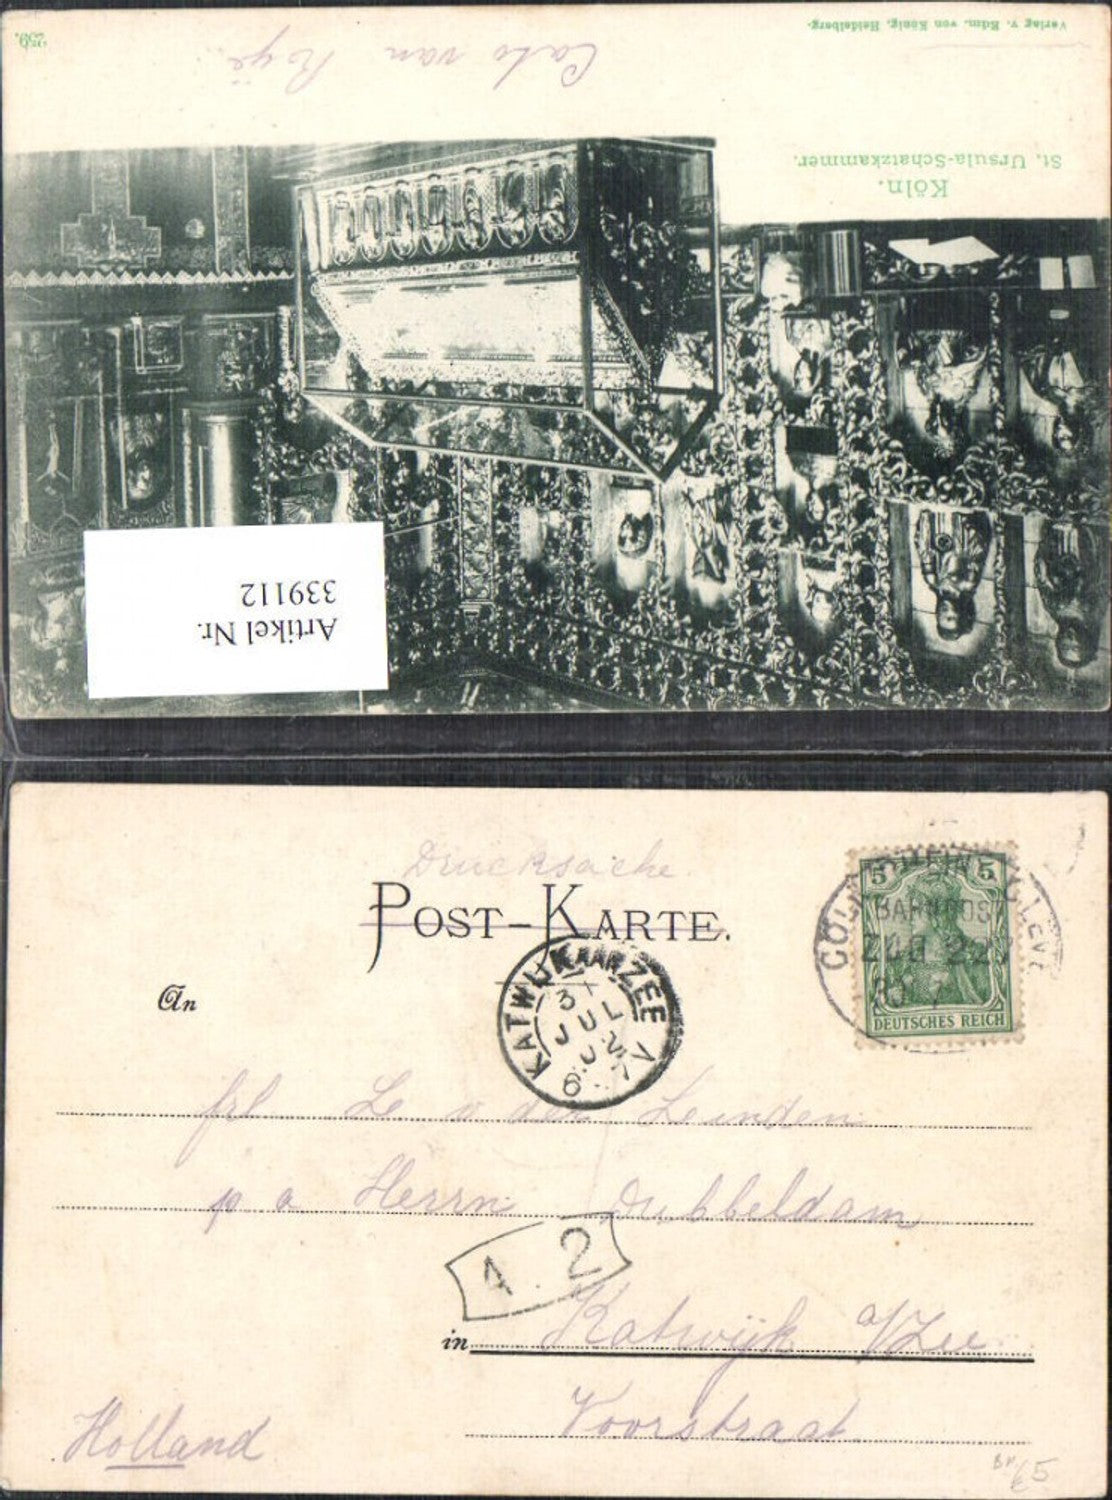 Verlag v. Edm. von König, Heidelberg.
259.
Cato van Roijë
Köln.
St. Ursula-Schatzkammer.
Artikel Nr.
339112
Drucksache
POST-KARTE.
5 5
DEUTSCHES REICH
BAHNPOST
ZUG 22
30 7
KATWIJK AAN ZEE
31
JUL
6 - 7 V
An
frl Le v der Leinden
p a Herrn Dubbeldam
4 . 2
in Katwijk a/Zee
Voorstraat
Holland
65